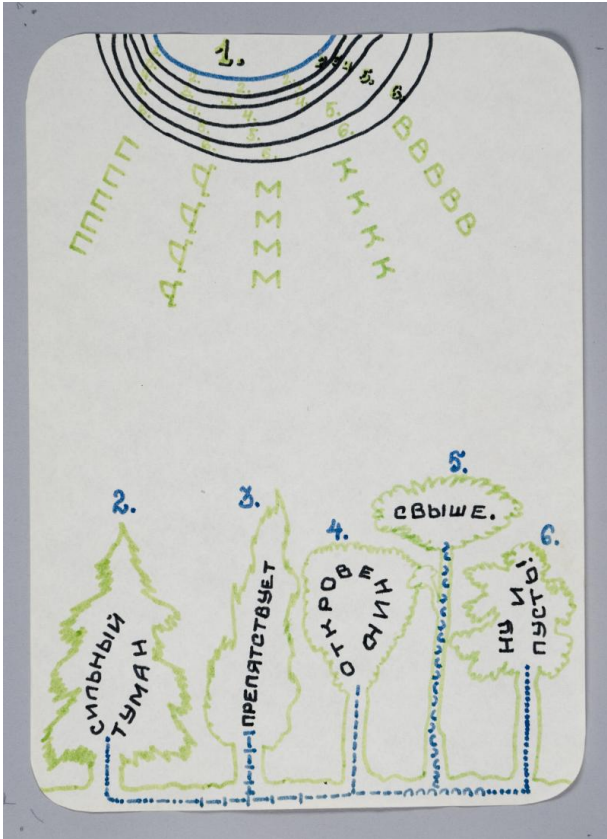 1.
2. 3. 4. 5. 6.
ППППП
Д.Д.Д.Д
М М М М
К К К К
ВВВВВ
2.
СИЛЬНЫЙ
ТУМАН
3.
ПРЕПЯТСТВУЕТ
4.
ОТКРОВЕ
НИЮ
5.
СВЫШЕ.
6.
НУ И
ПУСТЬ!